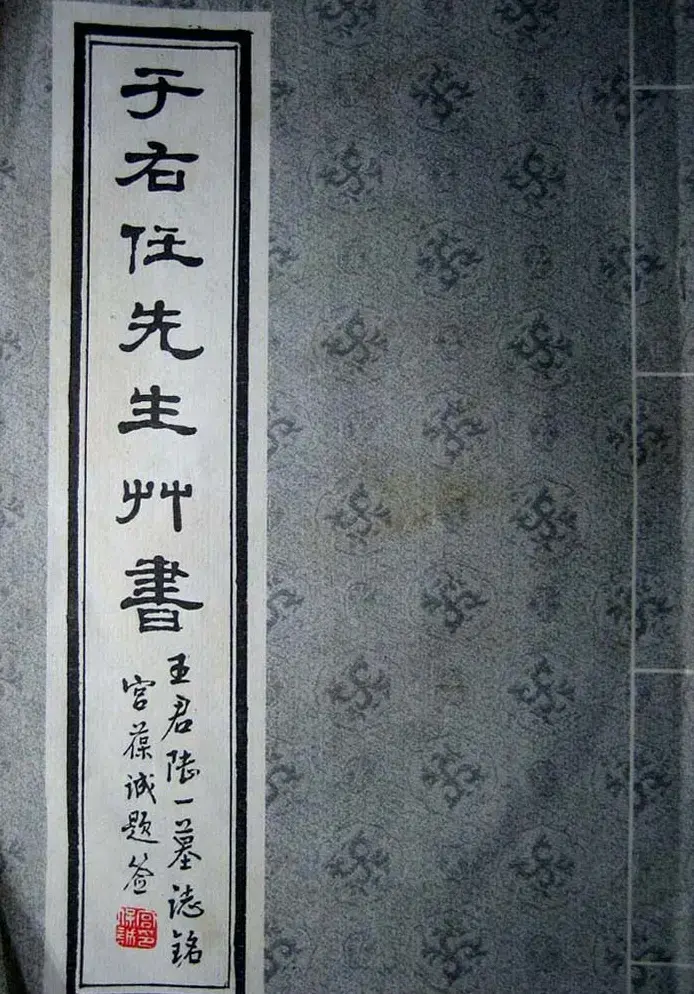 于右任先生艸書
王君陸一墓誌銘
宮葆诚題签
宮葆诚印